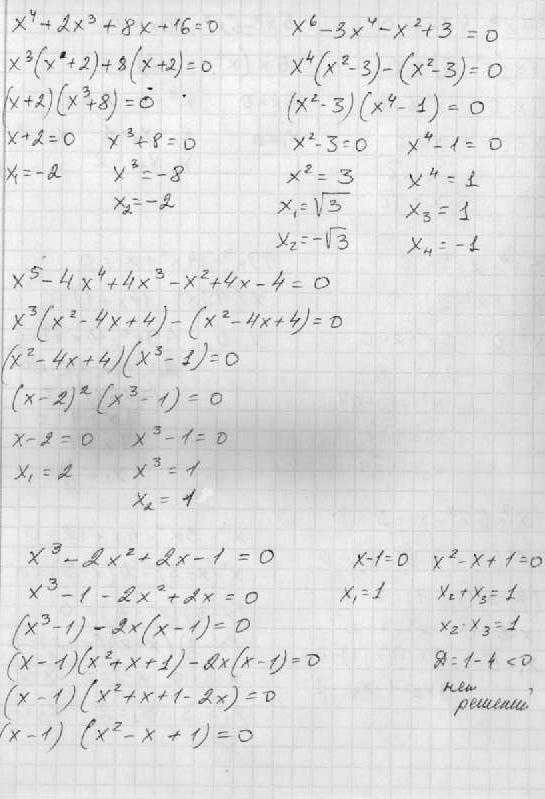 x⁴+2x³+8x+16=0
x³(x²+2)+8(x+2)=0
(x+2)(x³+8)=0
x+2=0 x³+8=0
x₁=-2 x³=-8
x₂=-2
x⁶-3x⁴-x²+3=0
x⁴(x²-3)-(x²-3)=0
(x²-3)(x⁴-1)=0
x²-3=0 x⁴-1=0
x²=3 x⁴=1
x₁=√3 x₃=1
x₂=-√3 x₄=-1
x⁵-4x⁴+4x³-x²+4x-4=0
x³(x²-4x+4)-(x²-4x+4)=0
(x²-4x+4)(x³-1)=0
(x-2)²(x³-1)=0
x-2=0 x³-1=0
x₁=2 x³=1
x₂=1
x³-2x²+2x-1=0
x³-1-2x²+2x=0
(x³-1)-2x(x-1)=0
(x-1)(x²+x+1)-2x(x-1)=0
(x-1)(x²+x+1-2x)=0
(x-1)(x²-x+1)=0
x-1=0 x²-x+1=0
x₁=1 x₂+x₃=1
x₂·x₃=1
Д=1-4<0
нет
решений